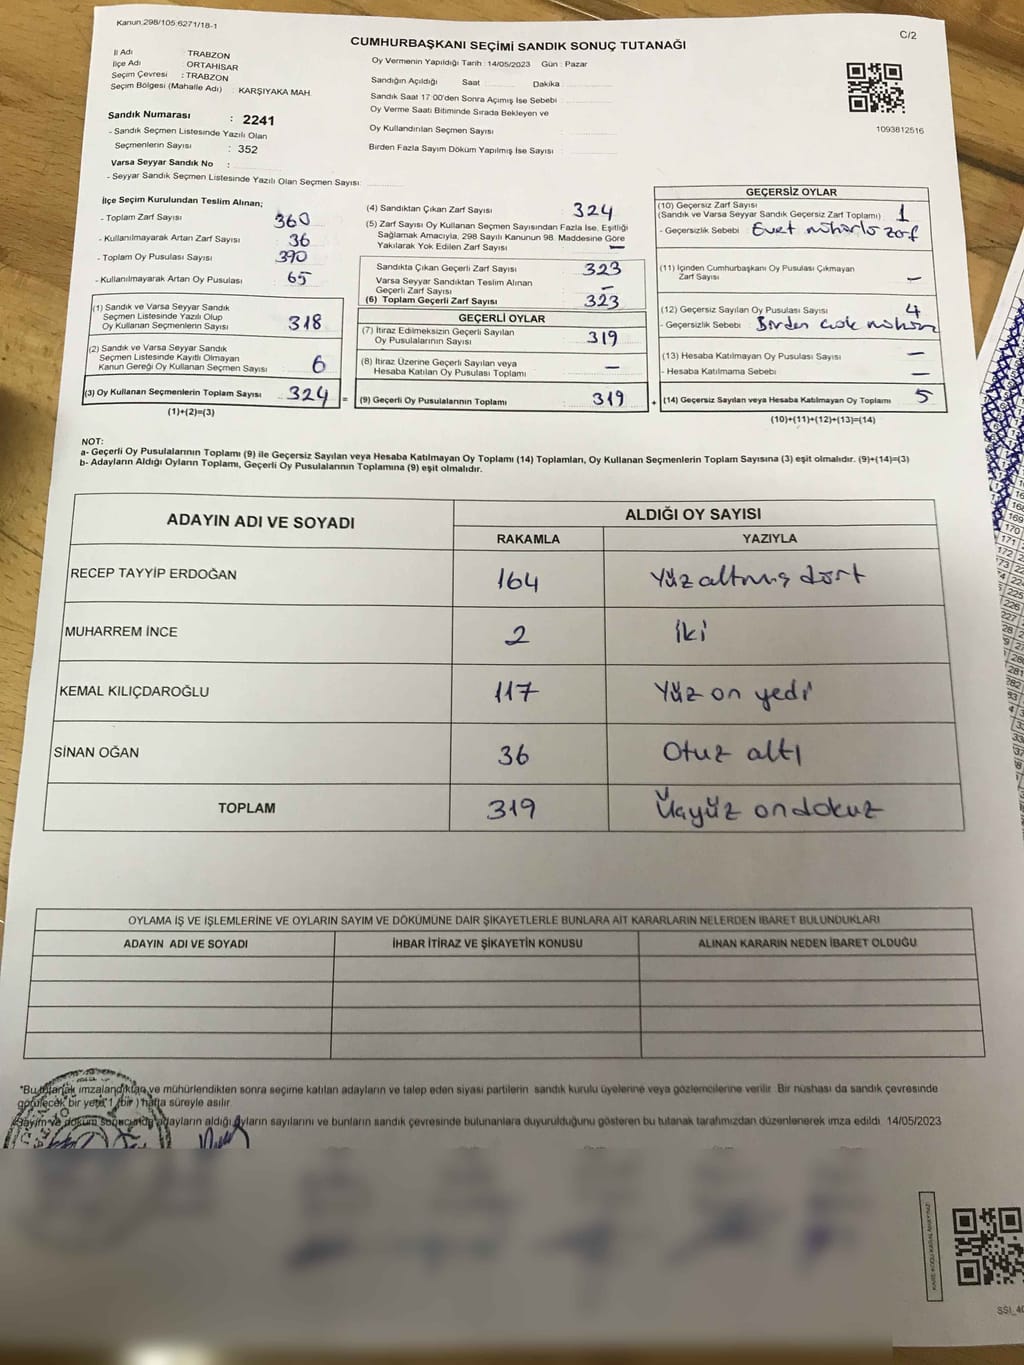 Kanun 298/105 6271/18-1
C/2
CUMHURBAŞKANI SEÇİMİ SANDIK SONUÇ TUTANAĞI
İl Adı : TRABZON
İlçe Adı : ORTAHİSAR
Seçim Çevresi : TRABZON
Seçim Bölgesi (Mahalle Adı) : KARŞIYAKA MAH.
Sandık Numarası : 2241
- Sandık Seçmen Listesinde Yazılı Olan
Seçmenlerin Sayısı : 352
Varsa Seyyar Sandık No :
- Seyyar Sandık Seçmen Listesinde Yazılı Olan Seçmen Sayısı:
Oy Vermenin Yapıldığı Tarih : 14/05/2023 Gün : Pazar
Sandığın Açıldığı Saat Dakika
Sandık Saat 17:00'den Sonra Açımış İse Sebebi
Oy Verme Saati Bitiminde Sırada Bekleyen ve
Oy Kullandırılan Seçmen Sayısı
Birden Fazla Sayım Döküm Yapılmış İse Sayısı
1093812516
İlçe Seçim Kurulundan Teslim Alınan;
- Toplam Zarf Sayısı 360
- Kullanılmayarak Artan Zarf Sayısı 36
- Toplam Oy Pusulası Sayısı 390
- Kullanılmayarak Artan Oy Pusulası 65
(1) Sandık ve Varsa Seyyar Sandık
Seçmen Listesinde Yazılı Olup
Oy Kullanan Seçmenlerin Sayısı 318
(2) Sandık ve Varsa Seyyar Sandık
Seçmen Listesinde Kayıtlı Olmayan
Kanun Gereği Oy Kullanan Seçmen Sayısı 6
(3) Oy Kullanan Seçmenlerin Toplam Sayısı 324 =
(1)+(2)=(3)
(4) Sandıktan Çıkan Zarf Sayısı 324
(5) Zarf Sayısı Oy Kullanan Seçmen Sayısından Fazla İse, Eşitliği
Sağlamak Amacıyla, 298 Sayılı Kanunun 98. Maddesine Göre
Yakılarak Yok Edilen Zarf Sayısı —
Sandıkta Çıkan Geçerli Zarf Sayısı 323
Varsa Seyyar Sandıktan Teslim Alınan
Geçerli Zarf Sayısı —
(6) Toplam Geçerli Zarf Sayısı 323
GEÇERLİ OYLAR
(7) İtiraz Edilmeksizin Geçerli Sayılan
Oy Pusulalarının Sayısı 319
(8) İtiraz Üzerine Geçerli Sayılan veya
Hesaba Katılan Oy Pusulası Toplamı —
(9) Geçerli Oy Pusulalarının Toplamı 319 +
GEÇERSİZ OYLAR
(10) Geçersiz Zarf Sayısı
(Sandık ve Varsa Seyyar Sandık Geçersiz Zarf Toplamı) 1
- Geçersizlik Sebebi Evet mühürlü zarf
(11) İçinden Cumhurbaşkanı Oy Pusulası Çıkmayan
Zarf Sayısı —
(12) Geçersiz Sayılan Oy Pusulası Sayısı 4
- Geçersizlik Sebebi Birden çok mühür
(13) Hesaba Katılmayan Oy Pusulası Sayısı —
- Hesaba Katılmama Sebebi —
(14) Geçersiz Sayılan veya Hesaba Katılmayan Oy Toplamı 5
(10)+(11)+(12)+(13)=(14)
NOT:
a- Geçerli Oy Pusulalarının Toplamı (9) ile Geçersiz Sayılan veya Hesaba Katılmayan Oy Toplamı (14) Toplamları, Oy Kullanan Seçmenlerin Toplam Sayısına (3) eşit olmalıdır. (9)+(14)=(3)
b- Adayların Aldığı Oyların Toplamı, Geçerli Oy Pusulalarının Toplamına (9) eşit olmalıdır.
ADAYIN ADI VE SOYADI
ALDIĞI OY SAYISI
RAKAMLA YAZIYLA
RECEP TAYYİP ERDOĞAN 164 Yüz altmış dört
MUHARREM İNCE 2 iki
KEMAL KILIÇDAROĞLU 117 Yüz on yedi
SİNAN OĞAN 36 Otuz altı
TOPLAM 319 Üçyüz ondokuz
OYLAMA İŞ VE İŞLEMLERİNE VE OYLARIN SAYIM VE DÖKÜMÜNE DAİR ŞİKAYETLERLE BUNLARA AİT KARARLARIN NELERDEN İBARET BULUNDUKLARI
ADAYIN ADI VE SOYADI İHBAR İTİRAZ VE ŞİKAYETİN KONUSU ALINAN KARARIN NEDEN İBARET OLDUĞU
*Bu tutanak imzalandıktan ve mühürlendikten sonra seçime katılan adayların ve talep eden siyasi partilerin sandık kurulu üyelerine veya gözlemcilerine verilir. Bir nüshası da sandık çevresinde
görülecek bir yere 1 (bir) hafta süreyle asılır.
Sayım ve döküm sonucunda adayların aldığı oyların sayılarını ve bunların sandık çevresinde bulunanlara duyurulduğunu gösteren bu tutanak tarafımızdan düzenlenerek imza edildi 14/05/2023